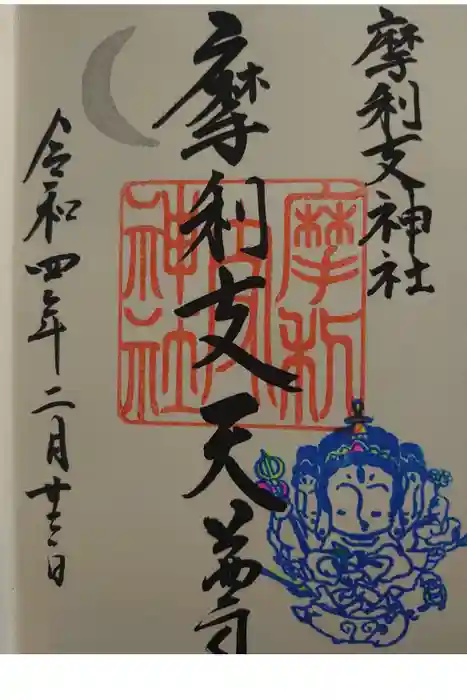 摩利支神社
摩利支天尊
摩利支
神社
令和四年二月廿二日